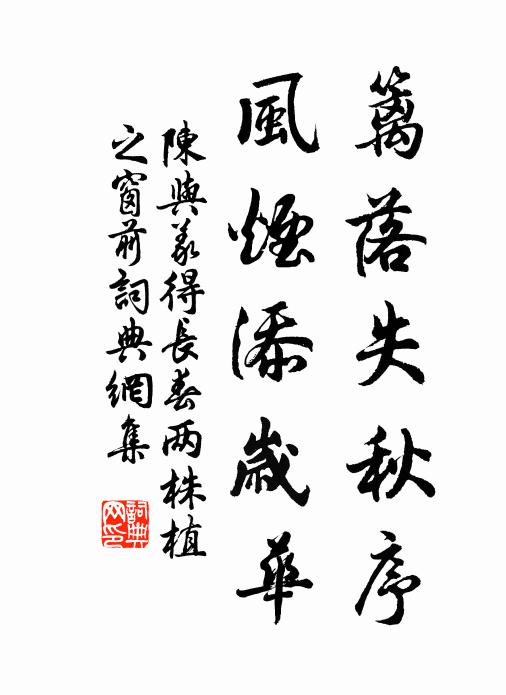 籬落失秋序
風煙添歲華
陳與義得長春两株植
之窗前詞典網集
詞典
网印